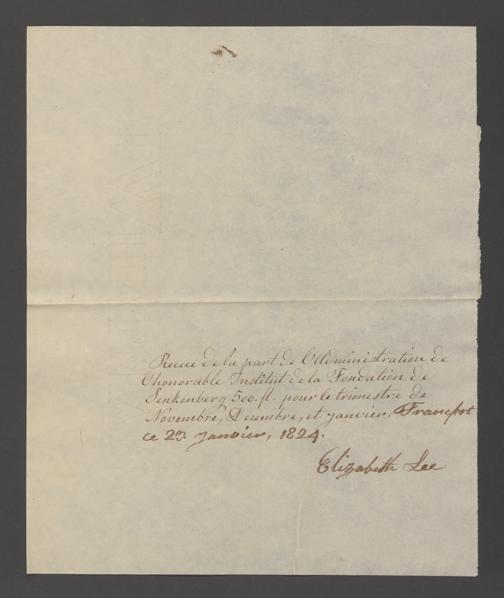 Recue de la part de l'Administration de
l'honorable Institut de la Fondation de
Senkenberg 500. fl. pour le trimestre de
Novembre, Decembre, et janvier, Francfort
ce 23 janvier, 1824.
Elizabeth Lee